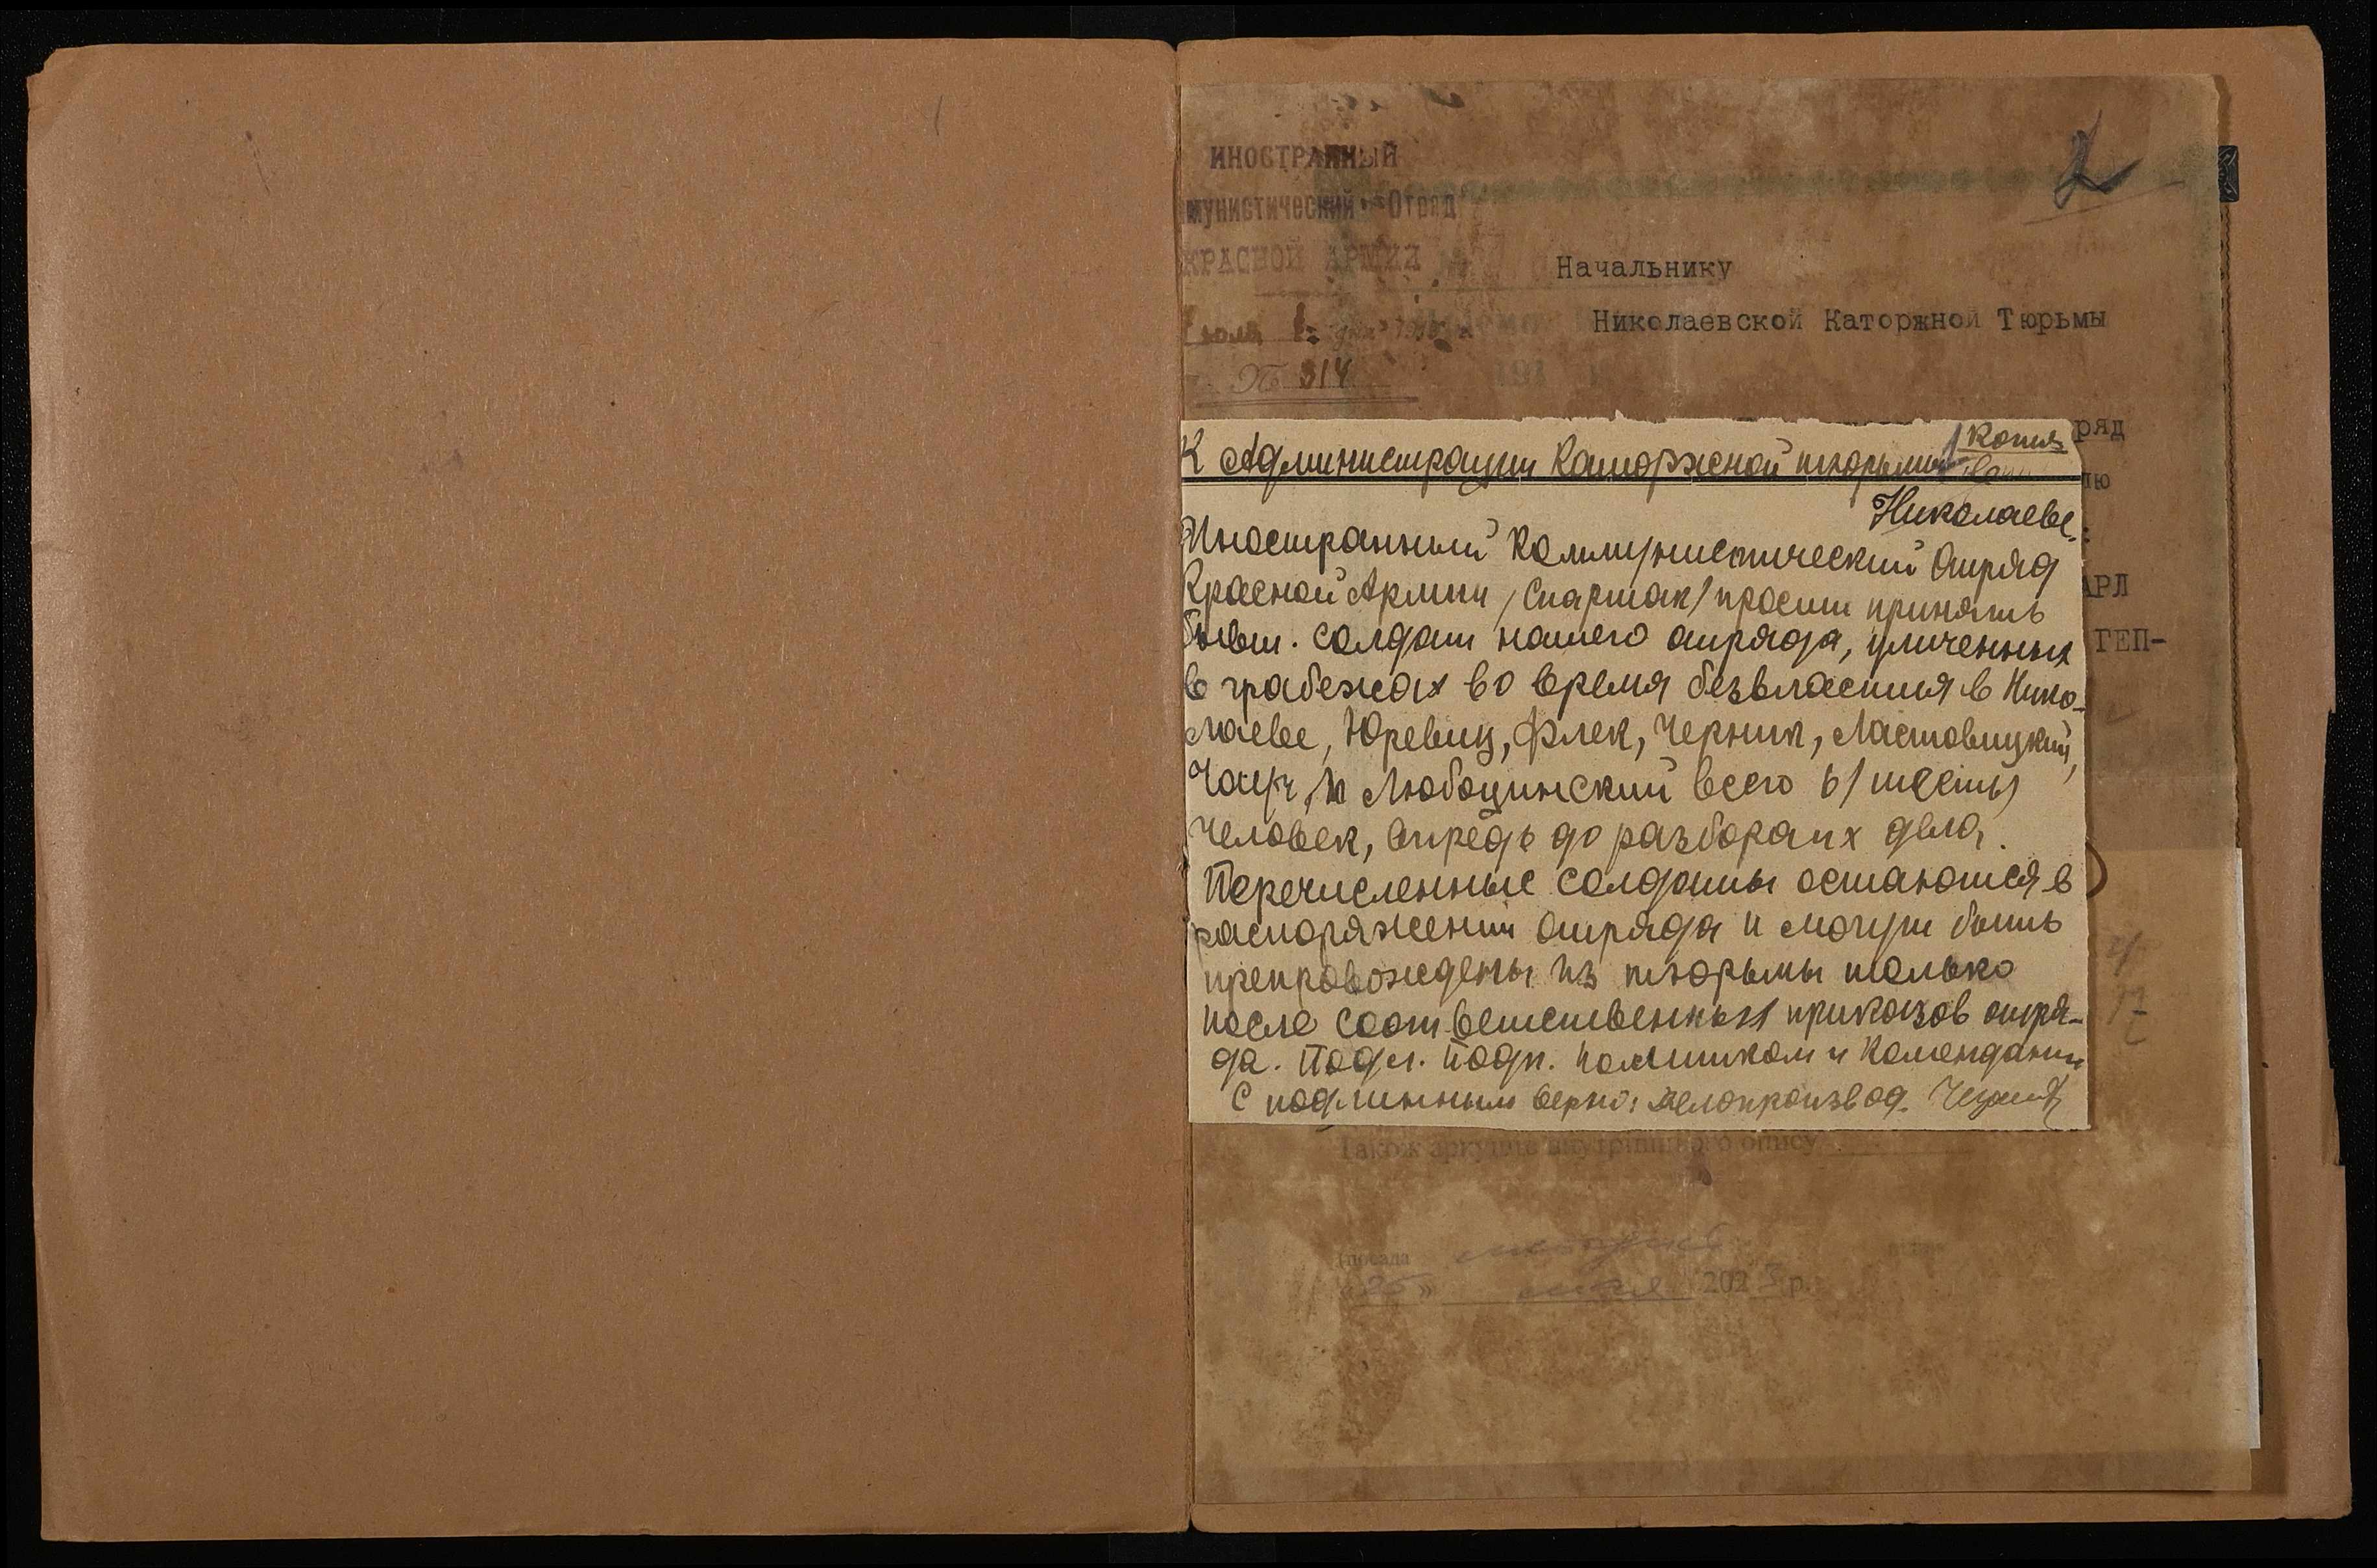 2
ИНОСТРАННЫЙ
мунистический Отряд
КРАСНОЙ АРМИИ
Начальнику
Николаевской Каторжной Тюрьмы
№ 314
ряд
лю
АРЛ
ГЕП-
Копия
К Администрации Каторжной тюрьмы
Николаеве.
Иностранный Коммунистический Отряд
Красной Армии /Спартак/ просит принять
бывш. солдат нашего отряда, уличенных
в грабежах во время безвластия в Нико-
лаеве, Юревиц, Флек, Черник, Ластовицкий,
и Любоцинский всего 6/шесть/
человек, впредь до разбора их дела.
Перечисленные солдаты остаются в
распоряжении отряда и могут быть
препровождены из тюрьмы только
после соответственных приказов отря-
да. Подл. подп. Политком и Комендант
С подлинным верно: Делопроизвод.
Також аркушів внутрішнього опису
(посада
202 р.